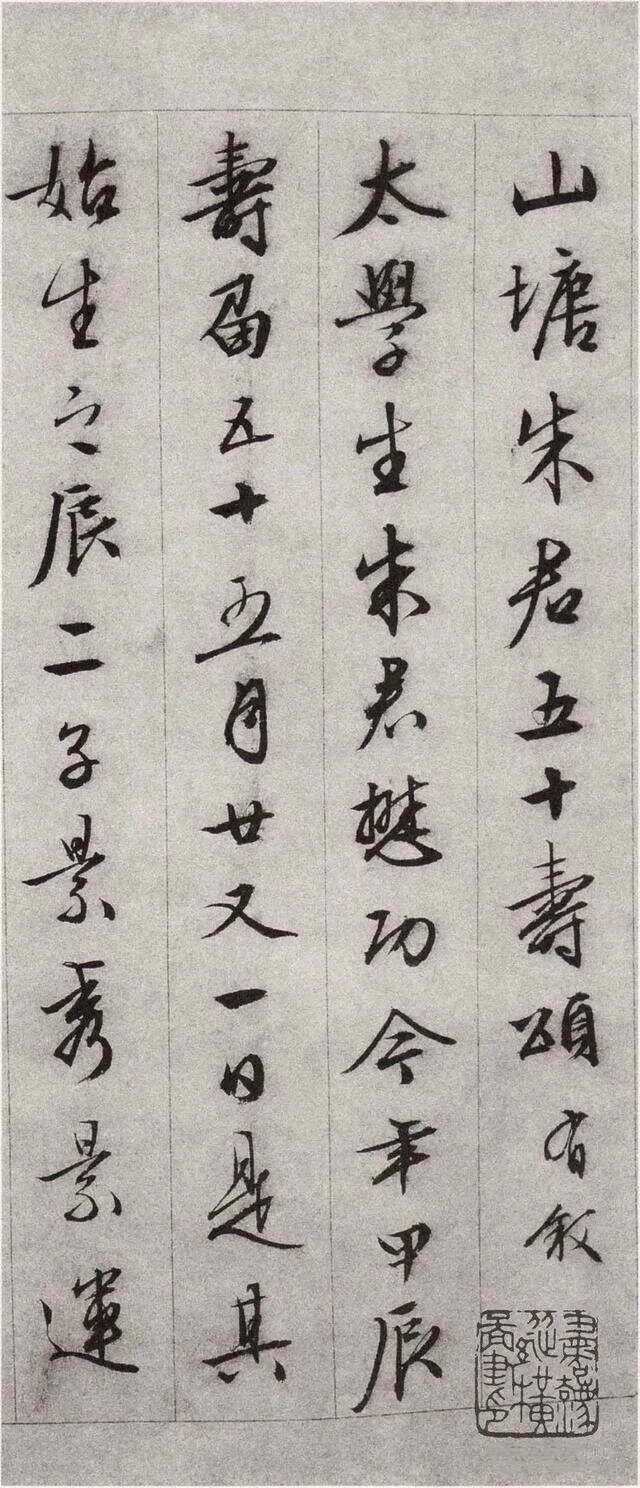 山塘朱君五十壽頌有敘
太學生朱君懋功今年甲辰
壽屆五十五月廿又一日是其
始生之辰二子景秀景運